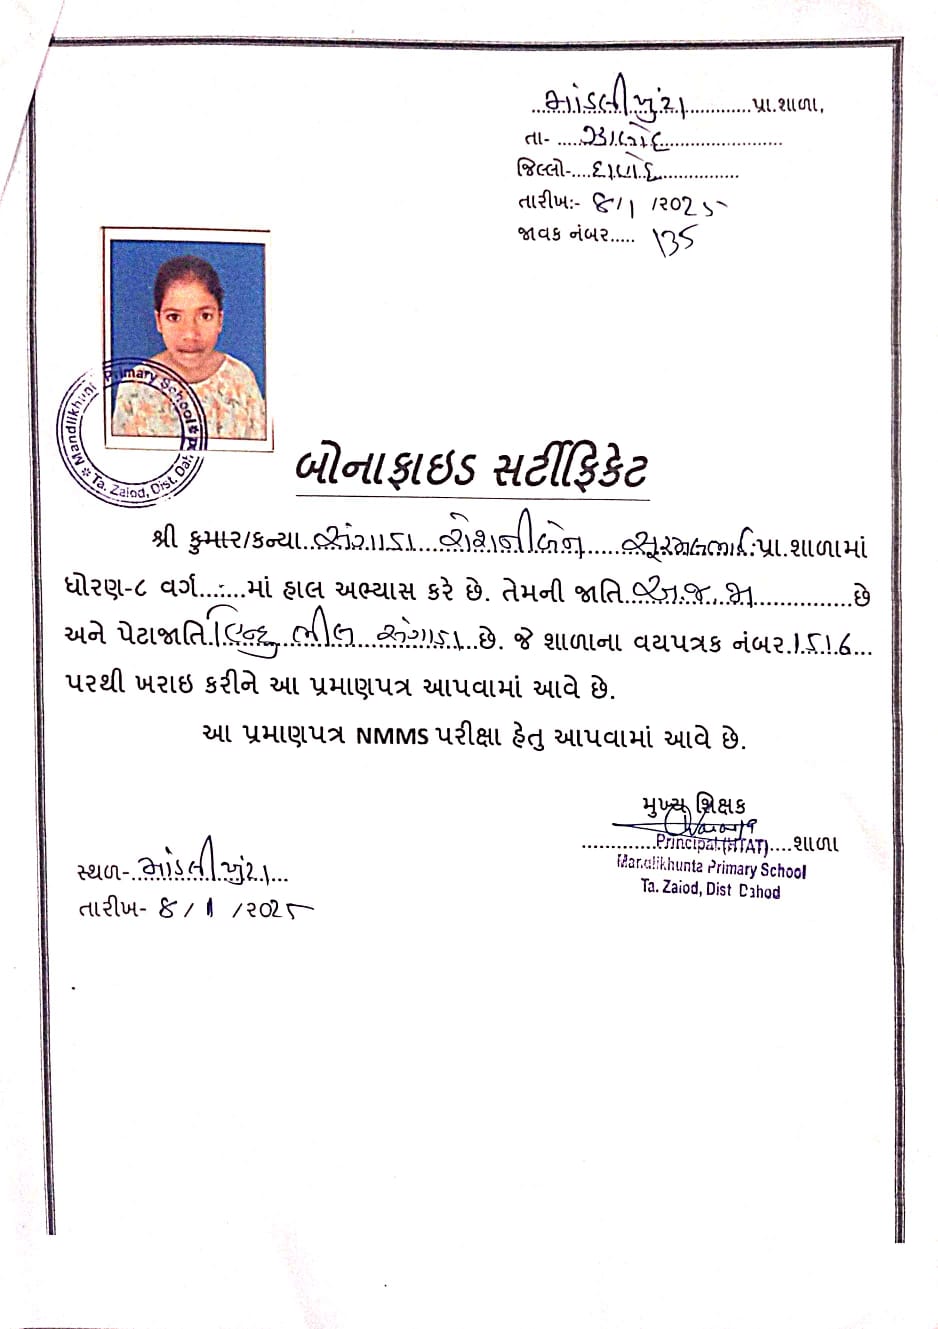 માંડલીખુંટા પ્રા.શાળા,
તા- ઝાલોદ
જિલ્લો- દાહોદ
તારીખ:- ૪/૧ /૨૦૨૫
જાવક નંબર..... 135
Mandlikhunta Primary School * Ta. Zalod, Dist. Dahod *
બોનાફાઇડ સર્ટીફિકેટ
શ્રી કુમાર/કન્યા સંગાડા રોશનીબેન સૂરમલભાઈ પ્રા.શાળામાં
ધોરણ-૮ વર્ગ...-...માં હાલ અભ્યાસ કરે છે. તેમની જાતિ અ.જ.જા છે
અને પેટાજાતિ હિન્દુ ભીલ સંગાડા છે. જે શાળાના વયપત્રક નંબર 1516
પરથી ખરાઇ કરીને આ પ્રમાણપત્ર આપવામાં આવે છે.
આ પ્રમાણપત્ર NMMS પરીક્ષા હેતુ આપવામાં આવે છે.
મુખ્ય શિક્ષક
Principal (HTAT)....શાળા
Mandlikhunta Primary School
Ta. Zalod, Dist Dahod
સ્થળ- માંડલીખુંટા
તારીખ- ૪/૧ /૨૦૨૫